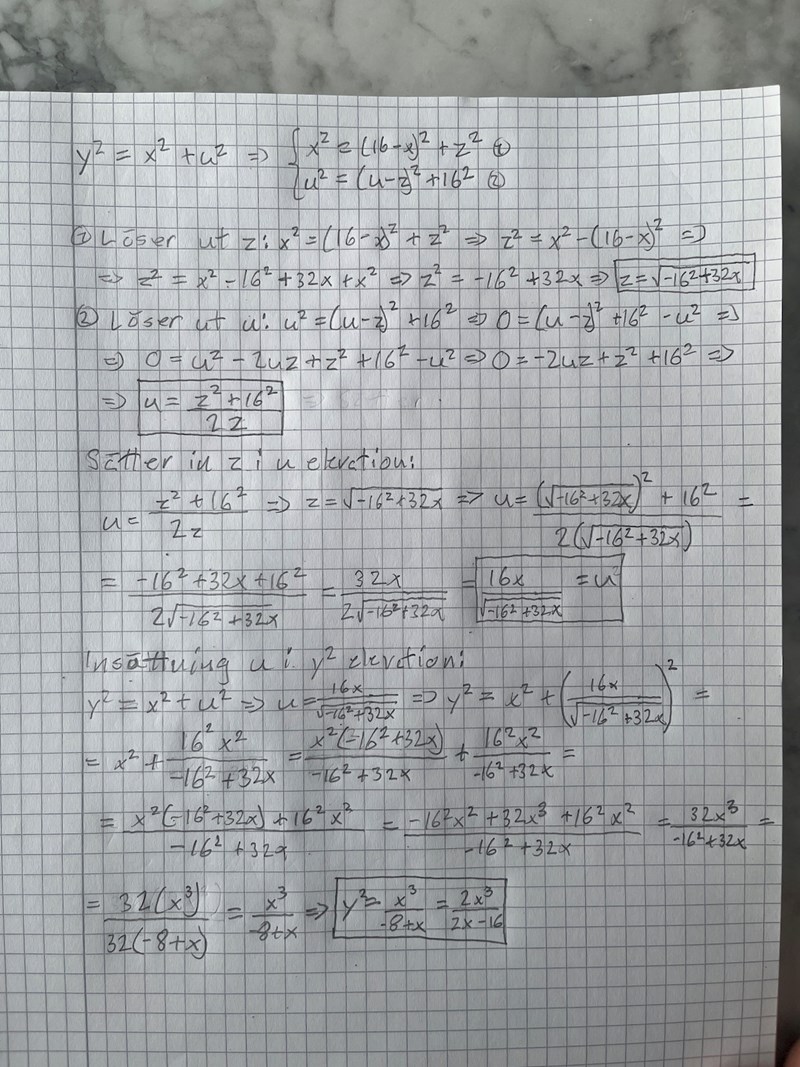 y² = x² + u² => { x² = (16-x)² + z² ①
{ u² = (u-z)² + 16² ②
① Löser ut z: x² = (16-x)² + z² => z² = x² - (16-x)² =>
=> z² = x² - 16² + 32x + x² => z² = -16² + 32x => z = √(-16² + 32x)
② Löser ut u: u² = (u-z)² + 16² => 0 = (u-z)² + 16² - u² =>
=> 0 = u² - 2uz + z² + 16² - u² => 0 = -2uz + z² + 16² =>
=> u = (z² + 16²)/(2z)
Sätter in z i u ekvation:
u = (z² + 16²)/(2z) => z = √(-16² + 32x) => u = ((√(-16² + 32x))² + 16²)/(2(√(-16² + 32x))) =
= (-16² + 32x + 16²)/(2√(-16² + 32x)) = 32x/(2√(-16² + 32x)) = 16x/√(-16² + 32x) = u
Insättning u i y² ekvation:
y² = x² + u² => u = 16x/√(-16² + 32x) => y² = x² + (16x/√(-16² + 32x))² =
= x² + 16²x²/(-16² + 32x) = x²(-16² + 32x)/(-16² + 32x) + 16²x²/(-16² + 32x) =
= (x²(-16² + 32x) + 16²x²)/(-16² + 32x) = (-16²x² + 32x³ + 16²x²)/(-16² + 32x) = 32x³/(-16² + 32x) =
= 32(x³)/(32(-8+x)) = x³/(-8+x) => y² = x³/(-8+x) = 2x³/(2x-16)